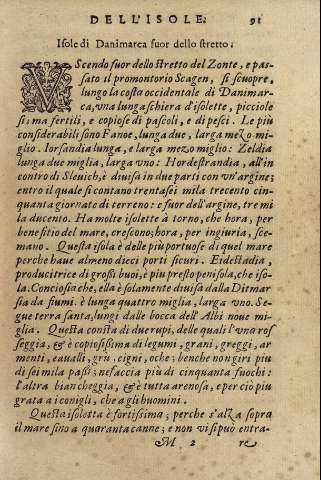 DELL'ISOLE. 91
Isole di Danimarca fuor dello stretto.
VScendo fuor dello stretto del Zonte, e pas-
sato il promontorio Scagen, si scuopre,
lungo la costa occidentale di Danimar-
ca, vna lunga schiera d'isolette, picciole
sì; ma fertili, e copiose di pascoli, e di pesci. Le più
considerabili sono Fanoe, lunga due, larga mezo mi-
glio. Iorsandia lunga, e larga mezo miglio: Zeldia
lunga due miglia, larga vno: Hordestrandia, all'in
contro di Sleuich, è diuisa in due parti con vn'argine;
entro il quale si contano trentasei mila trecento cin-
quanta giornate di terreno: e fuor dell'argine, tre mi
la ducento. Ha molte isolette à torno, che hora, per
benefitio del mare, crescono; hora, per ingiuria, sce-
mano. Questa isola è delle più portuose di quel mare
perche haue almeno dieci porti sicuri. Eidestadia,
producitrice di grossi buoi, è piu presto penisola, che iso-
la. Conciosia che, ella è solamente diuisa dalla Ditmar
sia da fiumi. è lunga quattro miglia, larga vno. Se-
gue terra santa, lungi dalle bocca dell'Albi noue mi-
glia. Questa consta di due rupi, delle quali l'vna ros
seggia, & è copiosissima di legumi, grani, greggi, ar
menti, caualli, gru, cigni, oche: benche non giri piu
di sei mila passi; ne faccia più di cinquanta fuochi:
l'altra biancheggia, & è tutta arenosa, e per ciò piu
grata a i conigli, che a gli huomini.
Questa isolotta è fortissima; perche s'alza sopra
il mare sino a quaranta canne; e non vi si può entra-
M 2 re